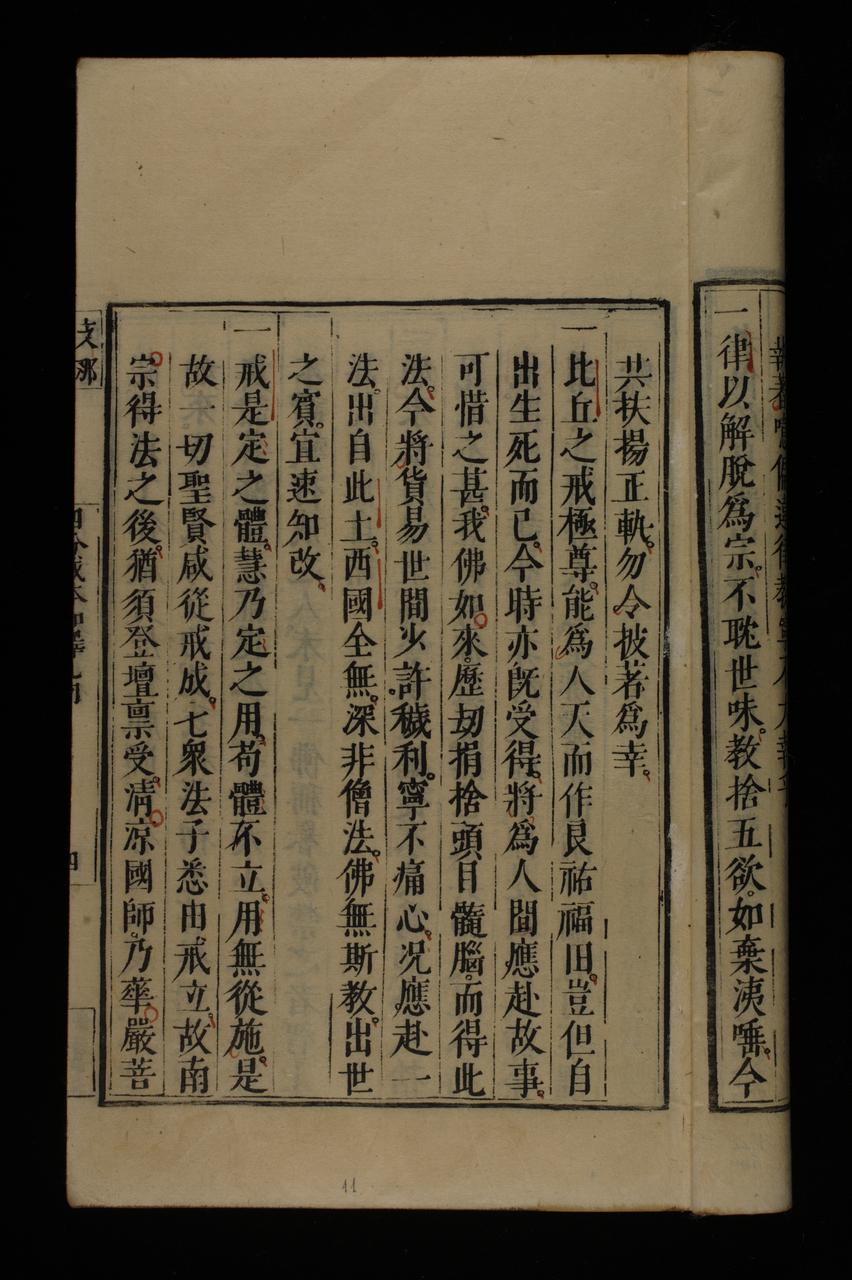 一律以解脫爲宗。不耽世味。教捨五欲。如棄洟唾。今
共扶揚正軌。勿令披著爲幸。
一比丘之戒極尊。能爲人天而作良祐福田。豈但自
出生死而已。今時亦旣受得。將爲人間應赴故事。
可惜之甚。我佛如來。歷劫捐捨頭目髓腦。而得此
法。今將貨易世間少許穢利。寧不痛心。况應赴一
法。出自此土。西國全無。深非僧法。佛無斯教。出世
之賓。宜速知改。
一戒是定之體。慧乃定之用。苟體不立。用無從施。是
故一切聖賢咸從戒成。七衆法子悉由戒立。故南
宗得法之後。猶須登壇禀受。清凉國師。乃華嚴菩
支那
四
11